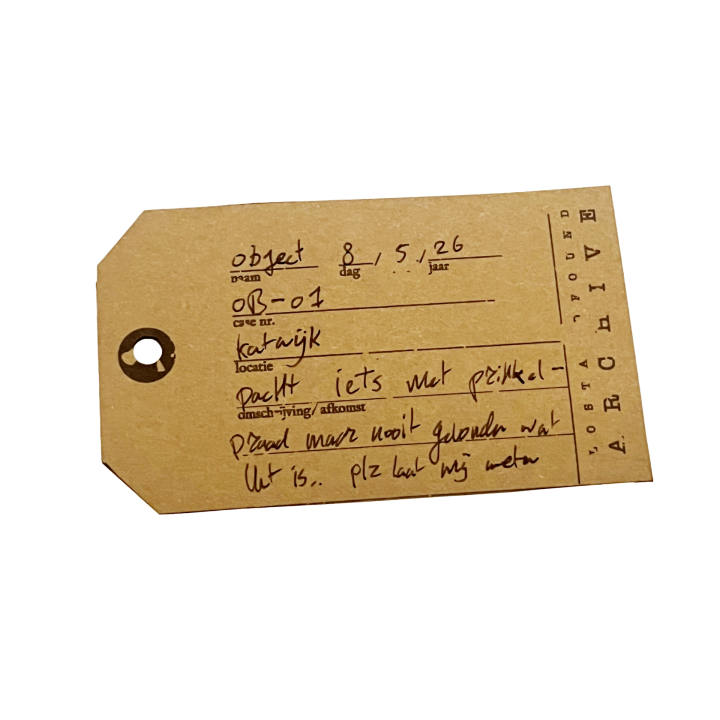 object 8 / 5 / 26
naam dag jaar
OB-01
case nr.
katwijk
locatie
Dacht iets met prikkel-
omschrijving/afkomst
draad maar nooit gevonden wat
het is.. plz laat mij weten
LOST & FOUND
ARCHIVE